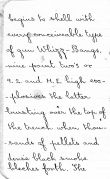 begins to shell with
every conceivable type
of gun Whizz-Bangs,
nine point two's or
9.2 and H.E high exs-
plosives the latter
bursting over the top of
the trench when thou-
sands of pellets and
dense black smoke
blaches forth. The